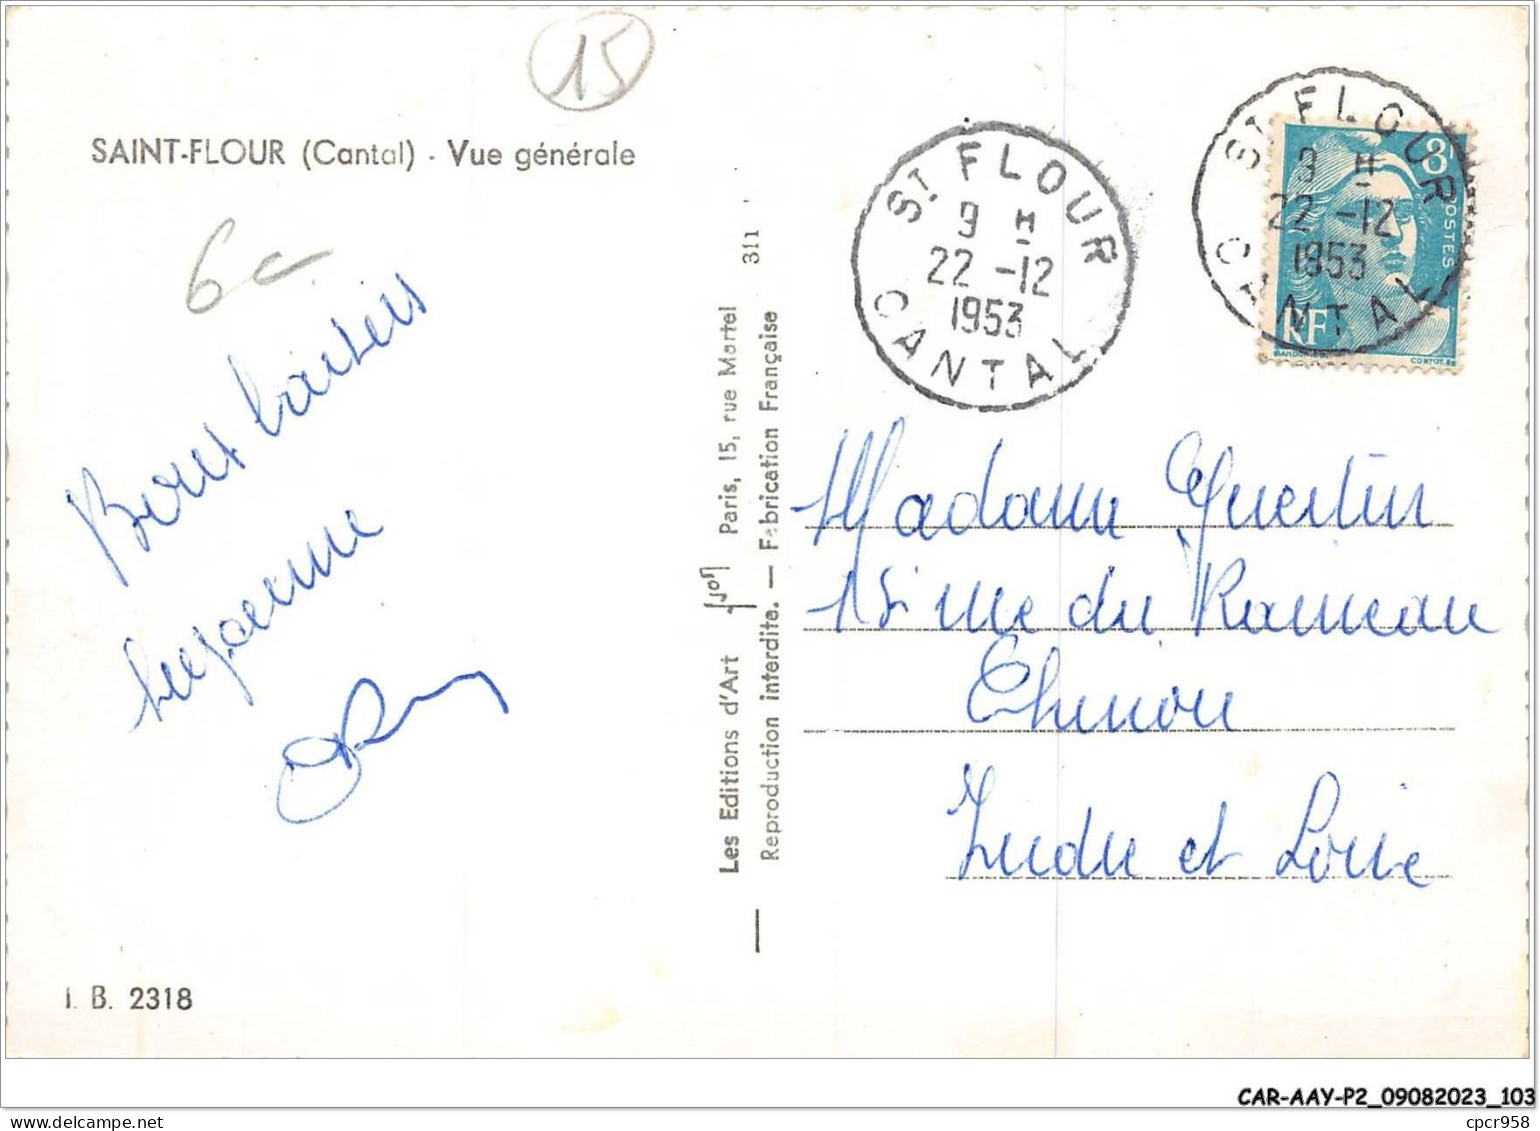 15
SAINT-FLOUR (Cantal) - Vue générale
6c
Bons baisers
I. B. 2318
Les Editions d'Art Yvon Paris, 15, rue Martel
Reproduction interdite. — Fabrication Française
311
ST FLOUR
9 H
22 -12
1953
CANTAL
ST FLOUR
9 H
22 -12
1953
CANTAL
8F
POSTES
RF
GANDON
CORTOT.SC
Madame Quentin
15 rue du Rameau
Chinon
Indre et Loire
CAR-AAY-P2_09082023_103
cpcr958